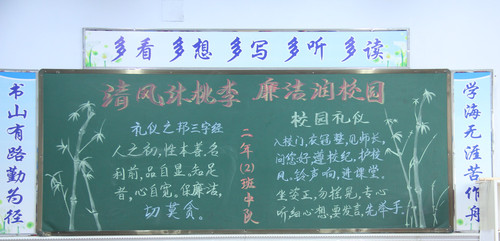 多看 多想 多写 多听 多读
书山有路勤为径
清风沐桃李 廉洁润校园
礼仪之邦三字经
人之初,性本善,名
利前,品自显,知足
者,心自宽。保廉洁,
切莫贪。
二年(2)班中队
校园礼仪
入校门,衣冠整,见师长,
问您好,遵校纪,护校
风。铃声响,进课堂。
坐姿正,勿摇晃,专心
听,细心想,要发言,先举手。
学海无涯苦作舟